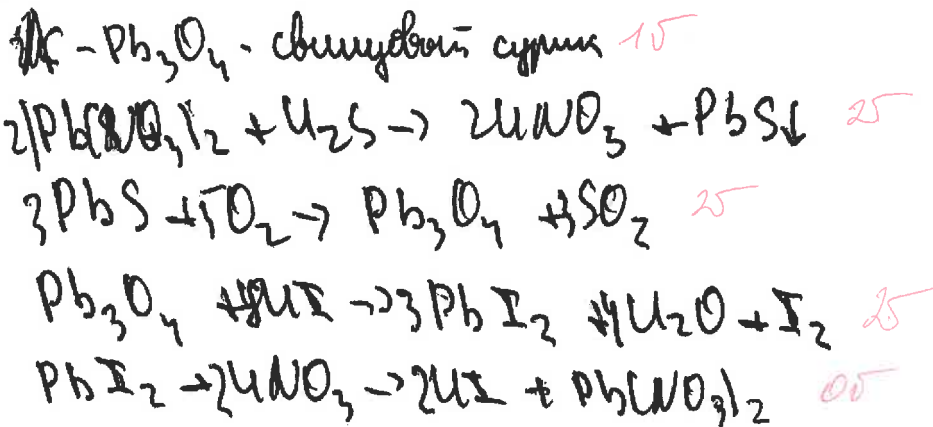 X - Pb₃O₄ - свинцовый сурик 1б
2) Pb(NO₃)₂ + H₂S → 2HNO₃ + PbS↓ 2б
3PbS + 5O₂ → Pb₃O₄ + 3SO₂ 2б
Pb₃O₄ + 8HI → 3PbI₂ + 4H₂O + I₂ 2б
PbI₂ + 2HNO₃ → 2HI + Pb(NO₃)₂ 0б